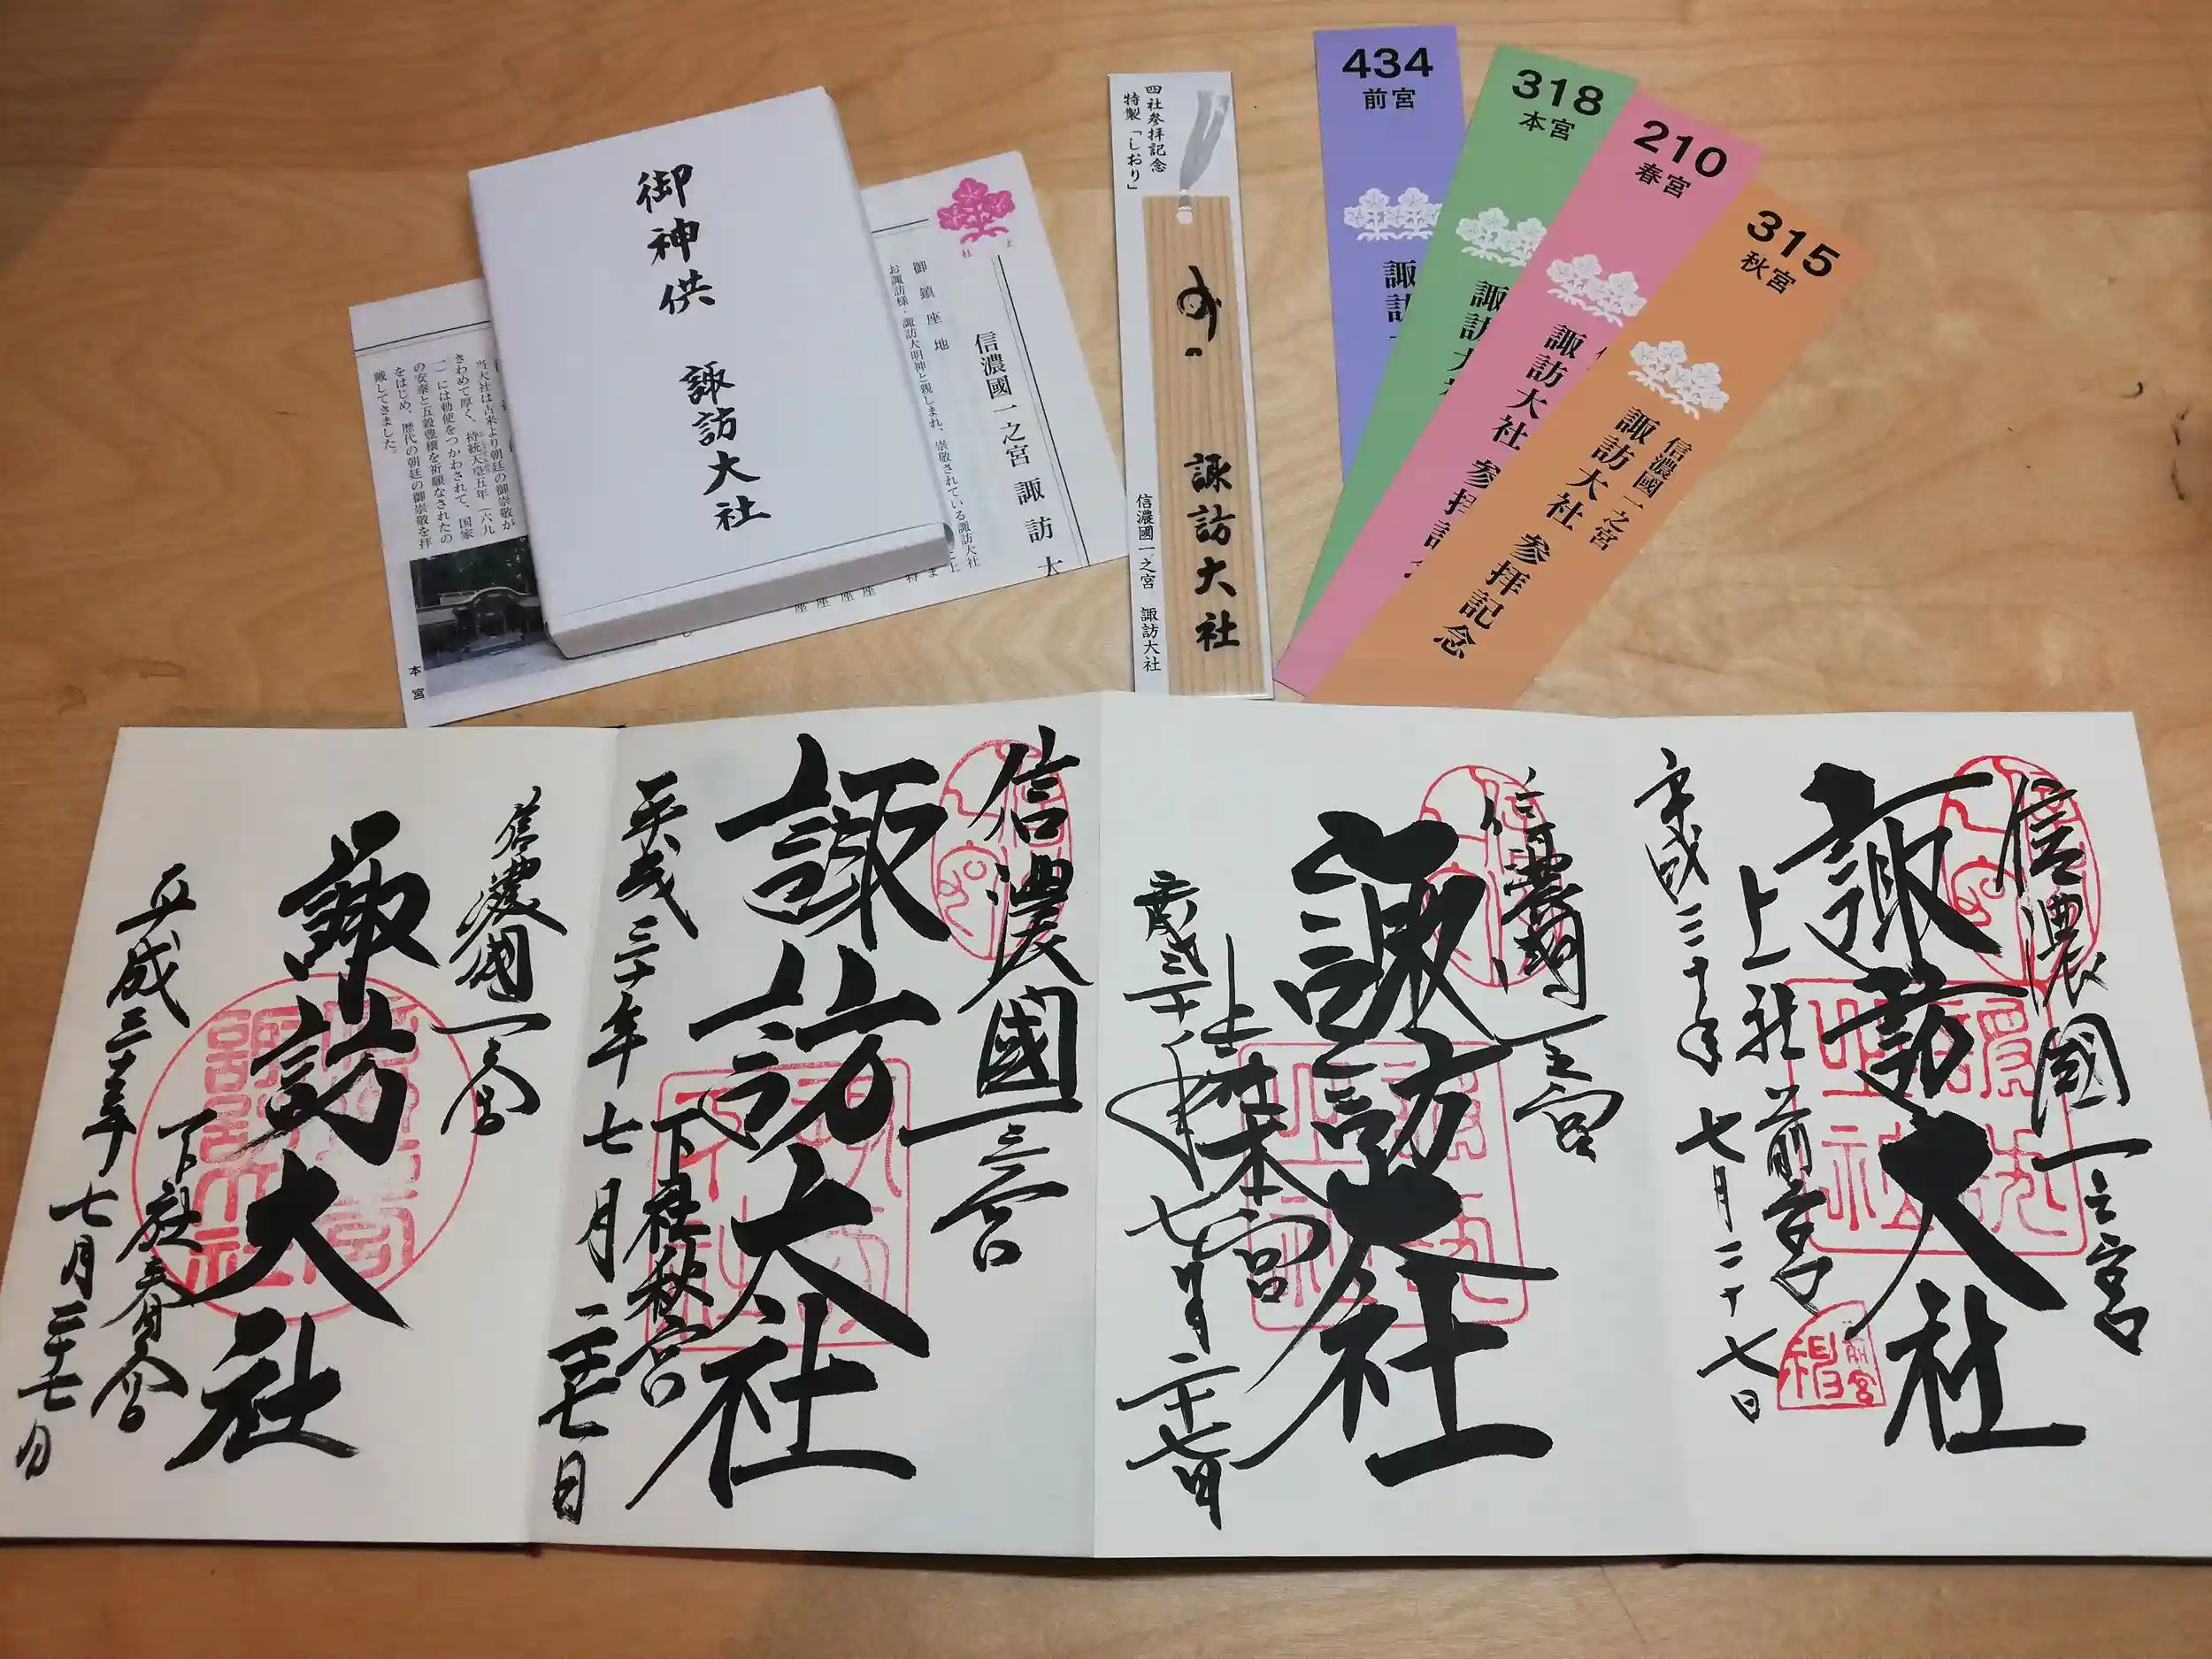 御神供 諏訪大社
信濃國一之宮 諏訪大
御鎮座地
お諏訪様・諏訪大明神と親しまれ、崇敬されている諏訪大社
当大社は古来より朝廷の御崇敬が
きわめて厚く、持統天皇五年(六九
一)には勅使をつかわされて、国家
の安泰と五穀豊穣を祈願なされたの
をはじめ、歴代の朝廷の御崇敬を拝
戴してきました。
本宮
四社参拝記念
特製「しおり」
諏訪大社
信濃國一之宮 諏訪大社
434
前宮
諏訪
318
本宮
諏訪大
210
春宮
諏訪大社 参拝記
315
秋宮
信濃國一之宮
諏訪大社 参拝記念
信濃國一之宮
諏訪大社
上社前宮
平成三十年七月二十七日
前宮
信濃國一之宮
諏訪大社
上社本宮
平成三十年七月二十七日
信濃國一之宮
諏訪大社
下社秋宮
平成三十年七月二十七日
信濃國一之宮
諏訪大社
下社春宮
平成三十年七月二十七日